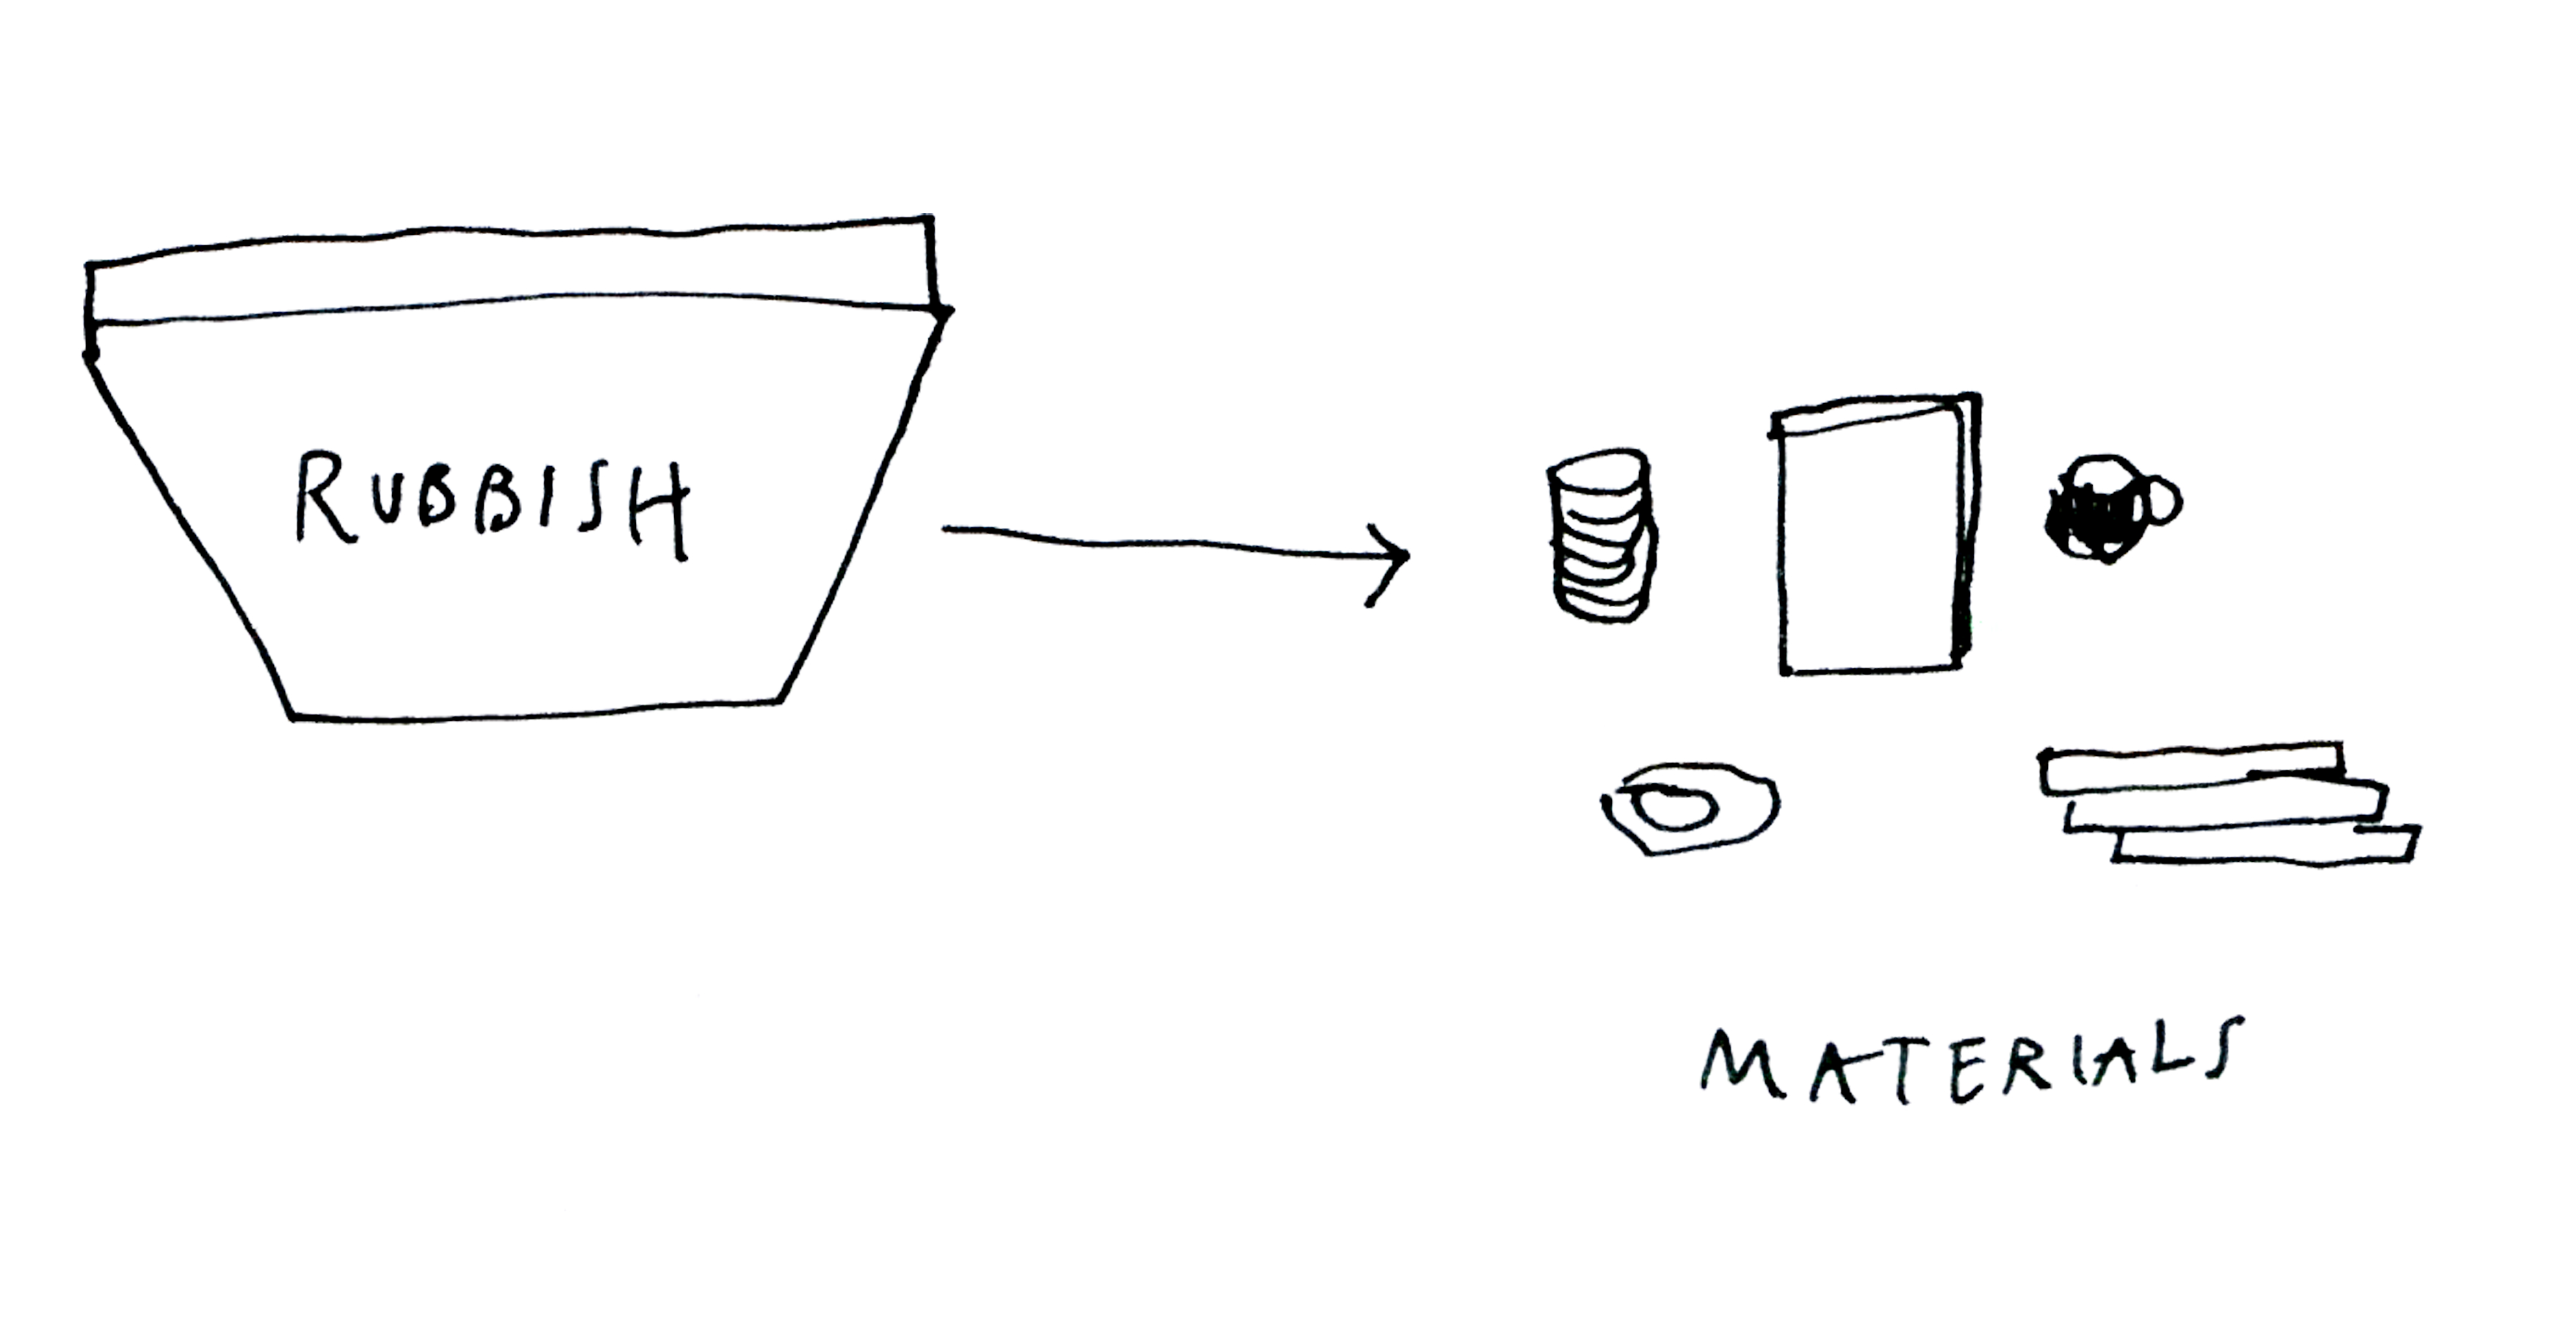 RUBBISH
MATERIALS